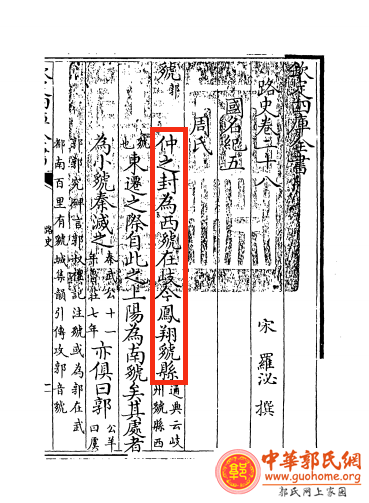 欽定四庫全書
路史卷二十八
宋 羅泌 撰
國名紀五
周氏
虢 郭
仲之封為西虢在岐今鳳翔虢縣 通典云岐州虢縣西
虢也 東遷之際自此之上陽為南虢矣其處者
為小虢秦滅之 秦武公十一年魯莊七年 亦俱曰郭 公羊曰虞
郭郭究碑言郭叔樓記注虢或為郭在武
都南百里有虢城集韻引傳攻郭音虢
路史
中華郭氏網
www.guohome.org
郭氏网上家園